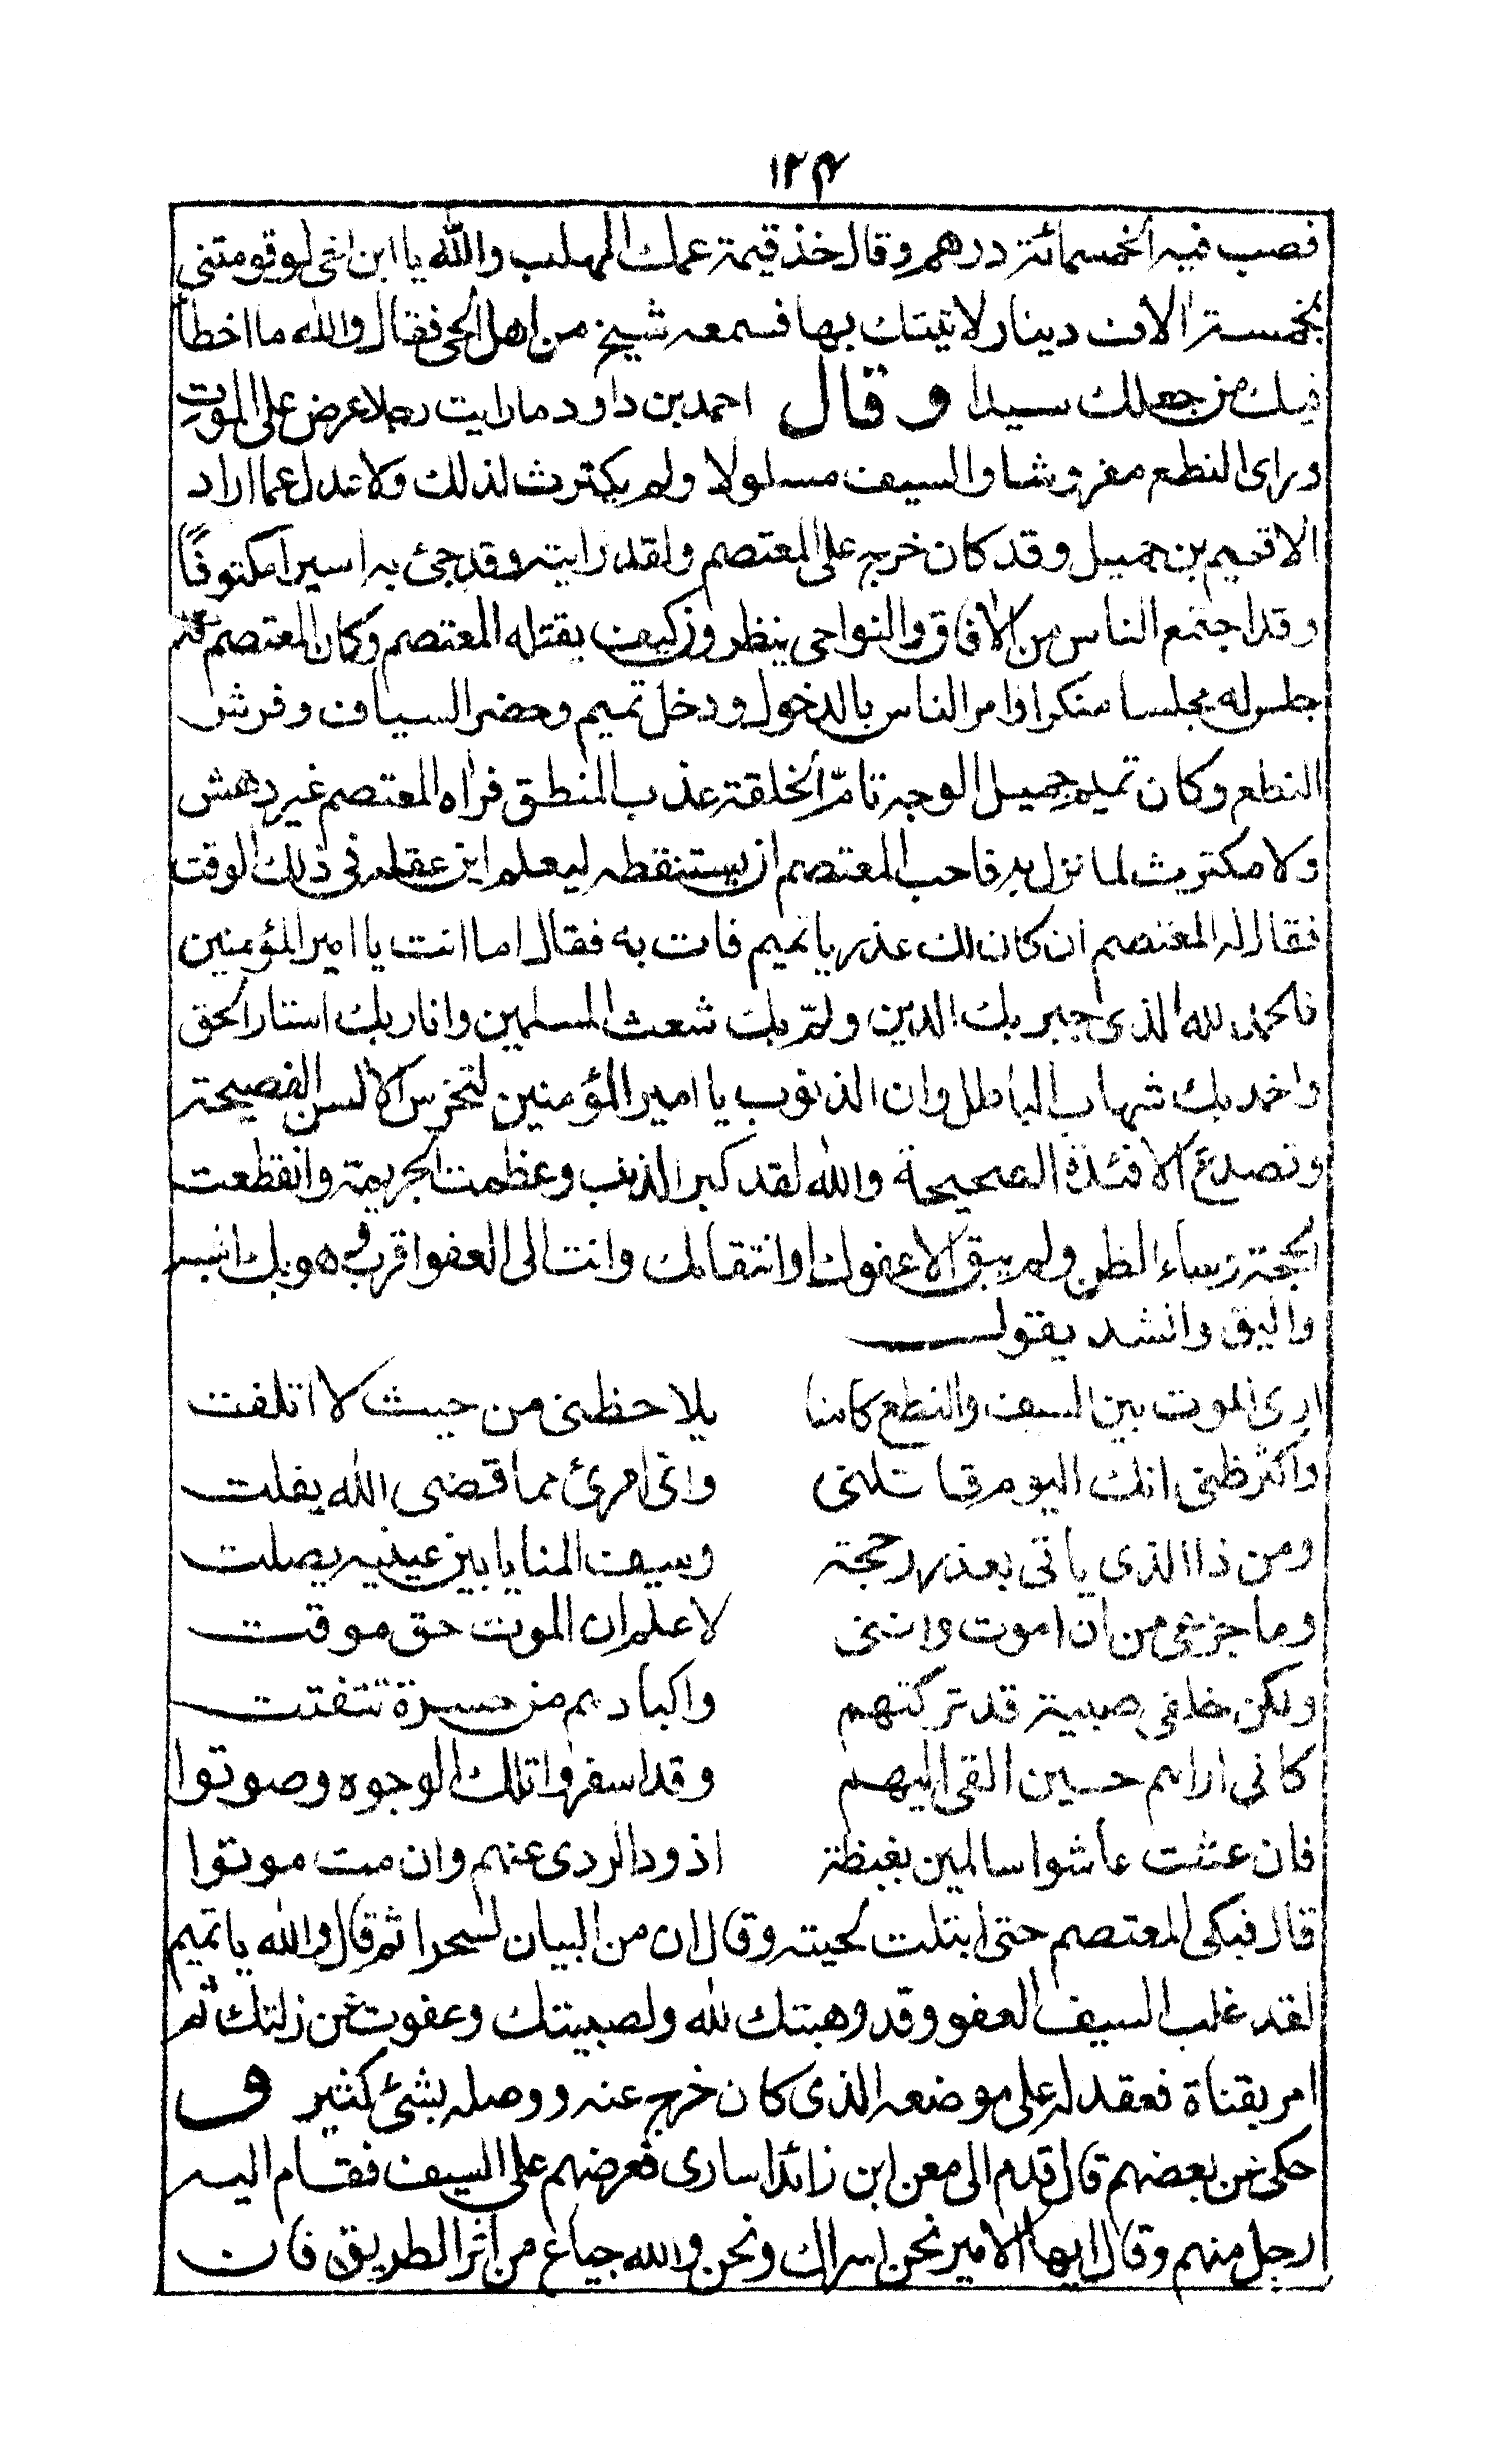 ١٢٤
فصب فيه الخمسمائة درهم وقال خذ قيمة عمك المهلب والله يا ابن اخي لو قومتني
بخمسة الاف دينار لاتيتك بها فسمعه شيخ من اهل الحي فقال والله ما اخطأ
فيك من جعلك سيدا وقال احمد بن داود ما رايت رجلا عرض على الموت
وراى النطع مفروشا والسيف مسلولا ولم يكترث لذلك ولا عدل عما اراد
الا تميم بن جميل وقد كان خرج على المعتصم ولقد رايته وقد جئ به اسيرا مكتوفًا
وقد اجتمع الناس من الافاق والنواحى ينظرون كيف يقتله المعتصم وكان المعتصم قد
جلس له مجلسا منكرا وامر الناس بالدخول ودخل تميم وحضر السياف وفرش
النطع وكان تميم جميل الوجه تامّ الخلقة عذب المنطق فراه المعتصم غير دهش
ولا مكترث لما نزل به فاحب المعتصم ان يستنقطه ليعلم اين عقله فى ذلك الوقت
فقال له المعتصم ان كان لك عذر يا تميم فات به فقال اما انت يا امير المؤمنين
فالحمد لله الذى جبر بك الدين ولمّ بك شعث المسلمين وانار بك استار الحق
واخمد بك شهاب الباطل وان الذنوب يا امير المؤمنين لتخرس الالسن الفصيحة
وتصدع الافئدة الصحيحة والله لقد كبر الذنب وعظمت الجريمة وانقطعت
الحجة وساء الظن ولم يبق الا عفوك او انتقامك وانت الى العفو اقرب وهو بك اشبه
واليق وانشد يقول
ارى الموت بين السيف والنطع كامنا يلاحظنى من حيث لا اتلفت
واكثر ظنى انك اليوم قاتلنى وانى امرئ مما قضى الله يفلت
ومن ذا الذى ياتى بعذر وحجة وسيف المنايا بين عينيه يصلت
وما جزعى من ان اموت واننى لاعلم ان الموت حق موقت
ولكن خلفى صبية قد تركتهم واكبادهم من حسرة تتفتت
كانى اراهم حين القى اليهم وقد اسفروا تلك الوجوه وصوتوا
فان عشت عاشوا سالمين بغبطة اذود الردى عنهم وان مت موتوا
قال فبكى المعتصم حتى ابتلت لحيته وقال ان من البيان لسحرا ثم قال والله يا تميم
لقد غلب السيف العفو وقد وهبتك لله ولصبيتك وعفوت عن زلتك ثم
امر بقناة فعقد له على موضعه الذى كان خرج عنه ووصله بشئ كثير و
حكى عن بعضهم قال قدم الى معن ابن زائدا سارى فعرضهم على السيف فقام اليه
رجل منهم وقال ايها الامير نحن اسراك ونحن والله جياع من اثر الطريق فان